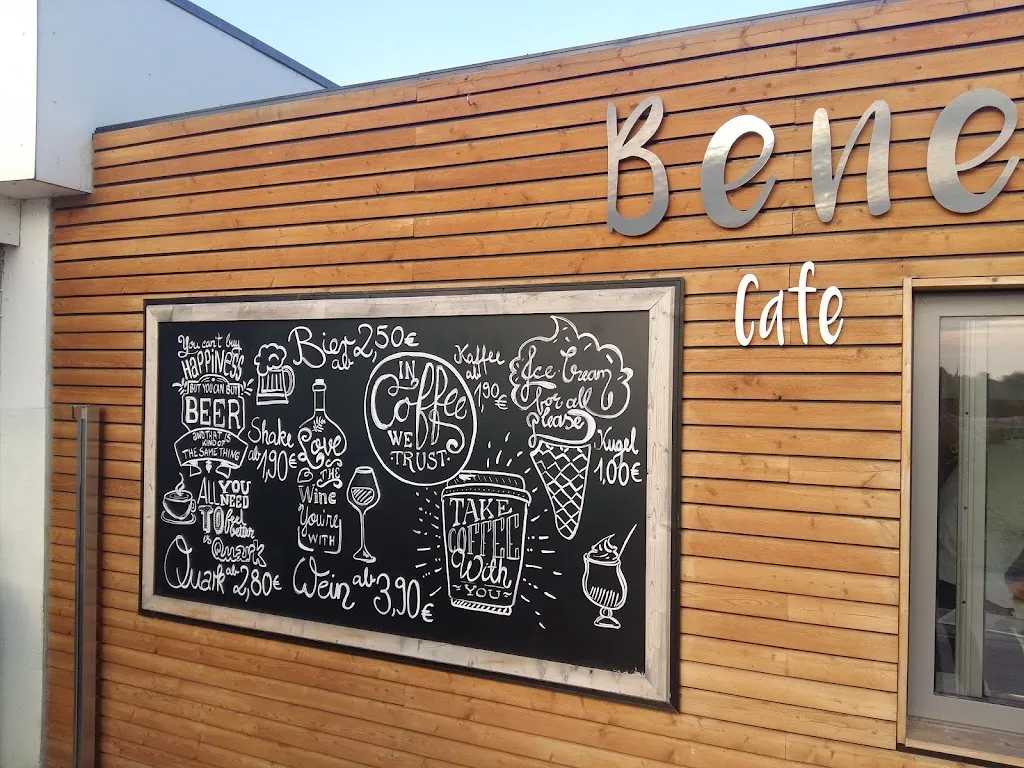 Bene
Cafe
You can't buy
HAPPINESS
BUT YOU CAN BUY
BEER
AND THAT IS
KIND OF
THE SAME THING
Bier
ab 2,50€
Shake
ab 1,90€
Love
THE
Wine
You're
WITH
IN
Coffee
WE
TRUST.
Kaffee
ab
1,90€
Ice-Cream
for all
please
Kugel
1,00€
ALL YOU
NEED
TO feel
better
is Quark
Quark ab 2,80€
Wein ab 3,90€
TAKE
COFFEE
With
YOU